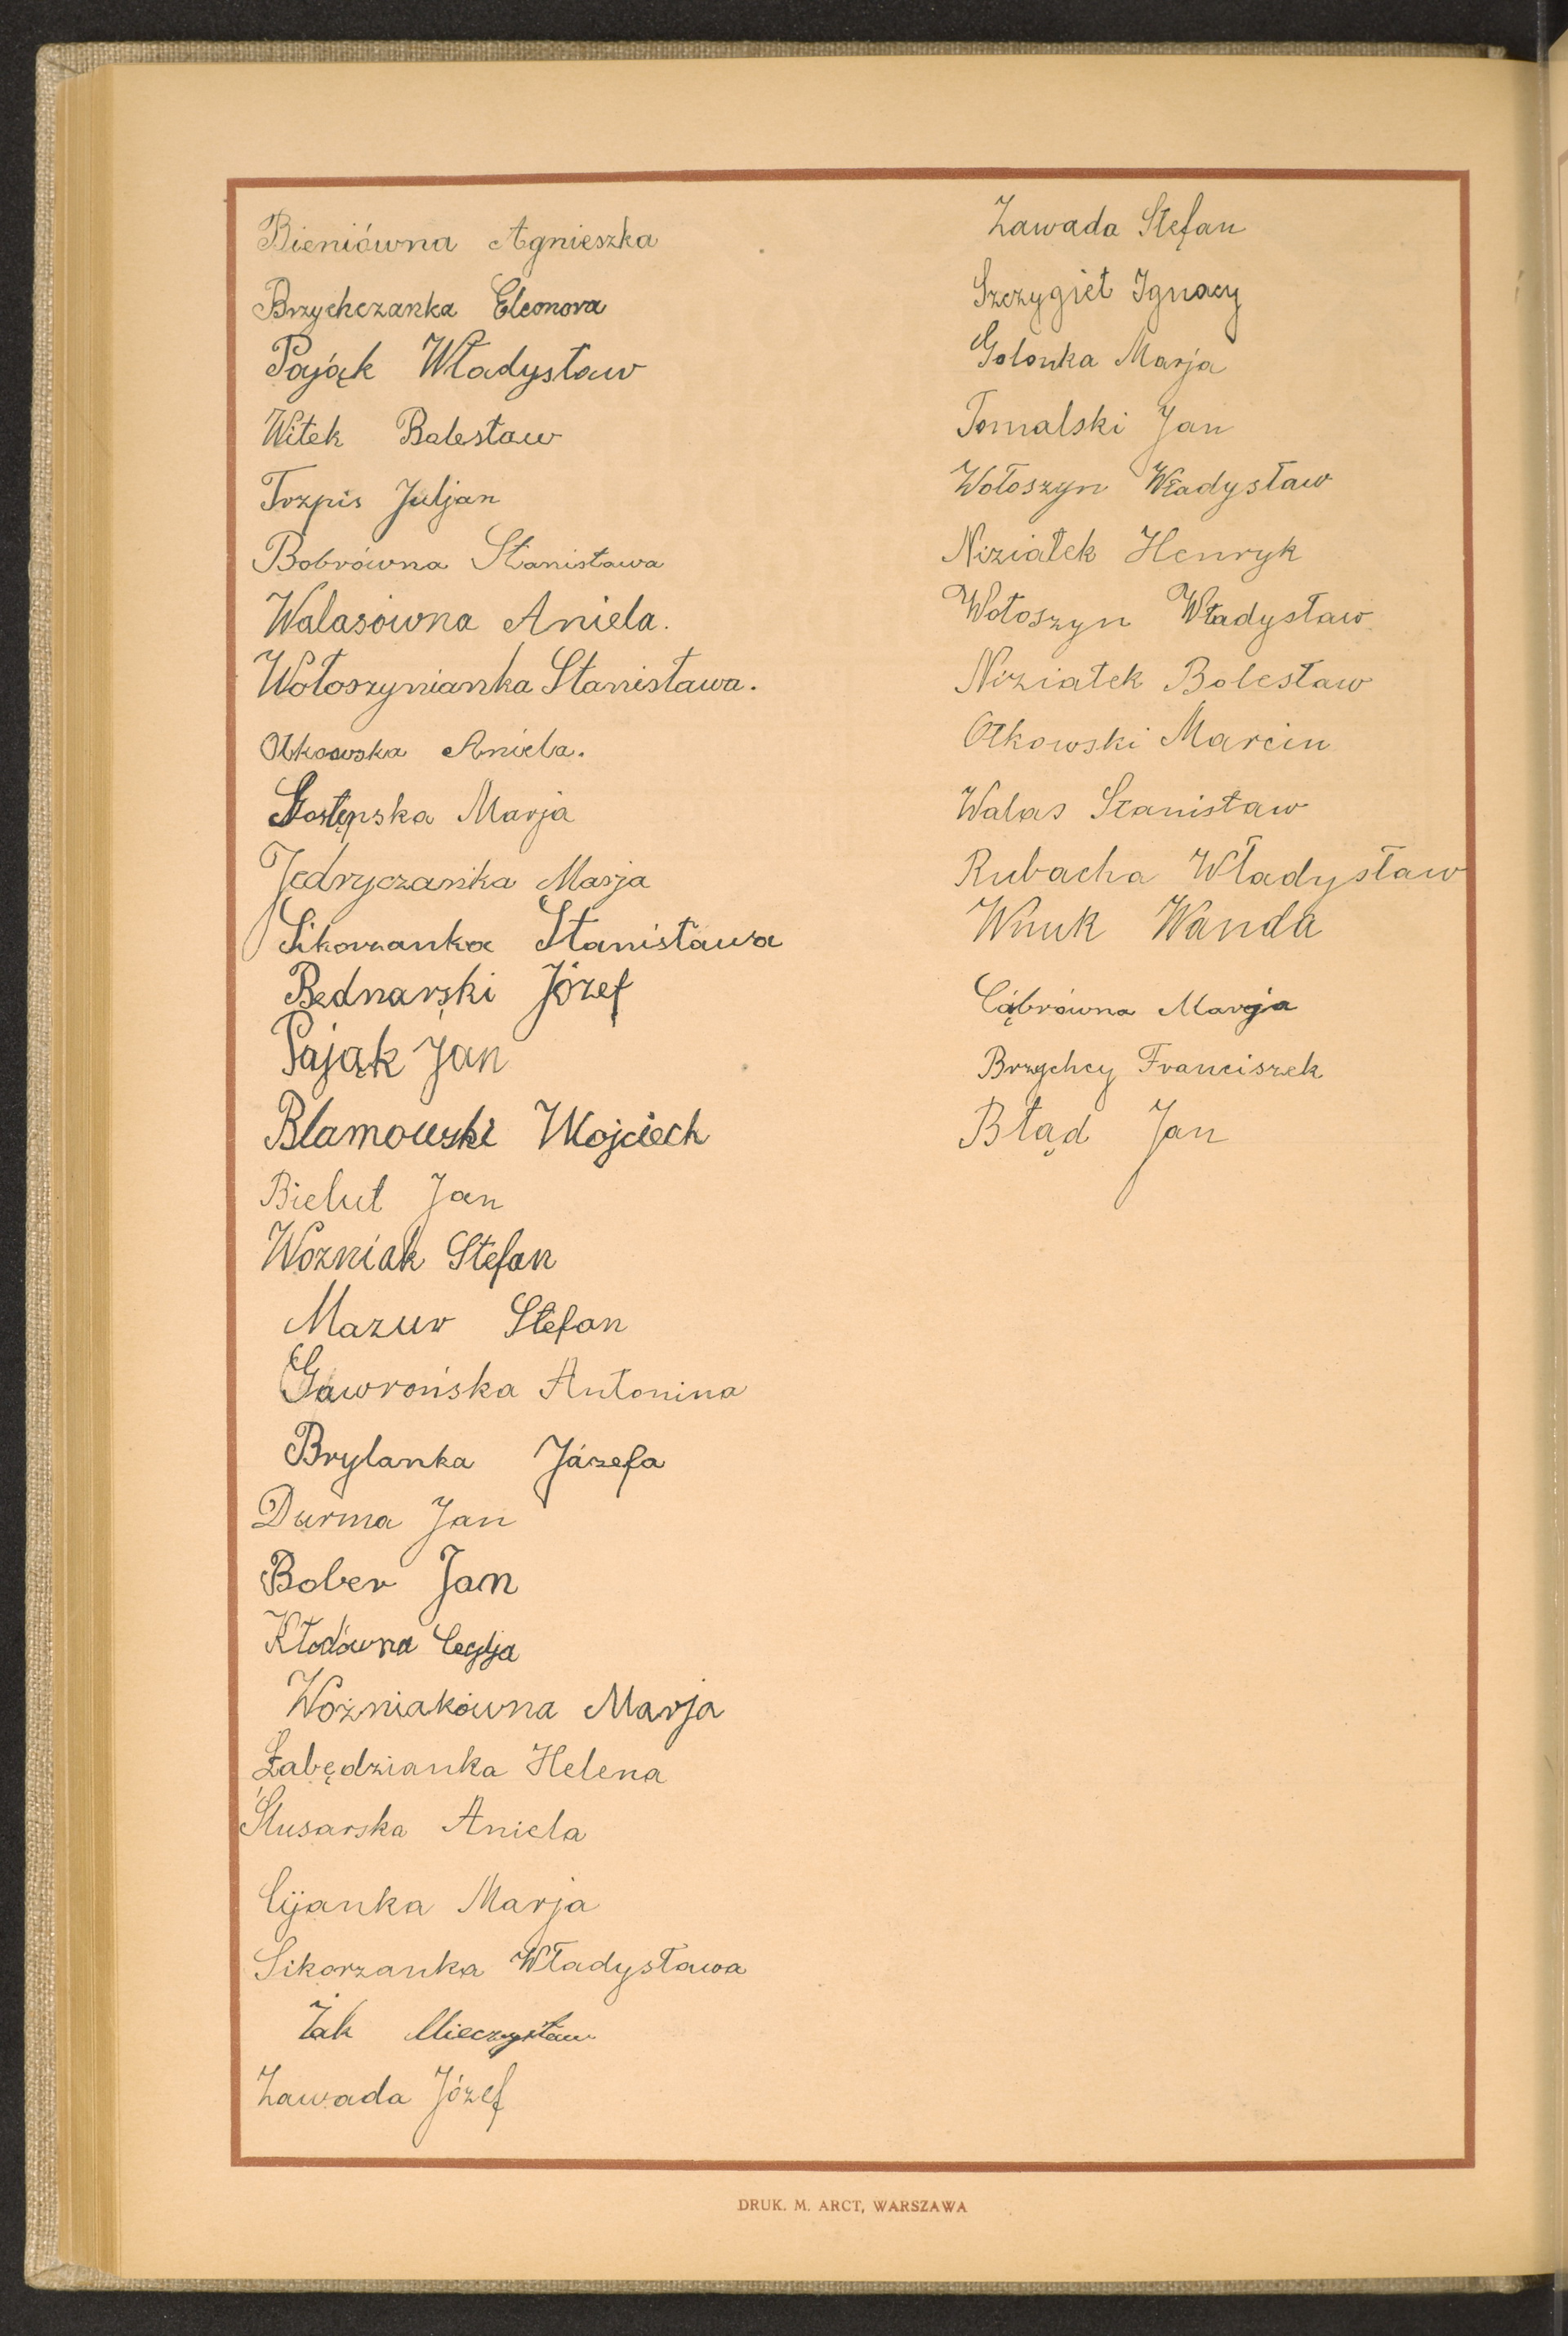 Bieniówna Agnieszka
Brzychczanka Eleonora
Pająk Władysław
Witek Bolesław
Trzpis Juljan
Bobrówna Stanisława
Walasówna Aniela.
Wołoszynianka Stanisława.
Ołkowska Aniela.
Gostępska Marja
Jędryczanka Marja
Sikorzanka Stanisława
Bednarski Józef
Pająk Jan
Blamowski Wojciech
Bielut Jan
Wozniak Stefan
Mazur Stefan
Gawrońska Antonina
Brylanka Józefa
Durma Jan
Bober Jan
Kłodówna Cecylja
Woźniakówna Marja
Łabędzianka Helena
Ślusarska Aniela
Cyjanka Marja
Sikorzanka Władysława
Żak Mieczysław
Zawada Józef
Zawada Stefan
Szczygieł Ignacy
Golonka Marja
Tomalski Jan
Wołoszyn Władysław
Niziałek Henryk
Wołoszyn Władysław
Niziałek Bolesław
Ołkowski Marcin
Walas Stanisław
Rubacha Władysław
Wnuk Wanda
Cąbrówna Marja
Brzychcy Franciszek
Błąd Jan
DRUK. M. ARCT, WARSZAWA